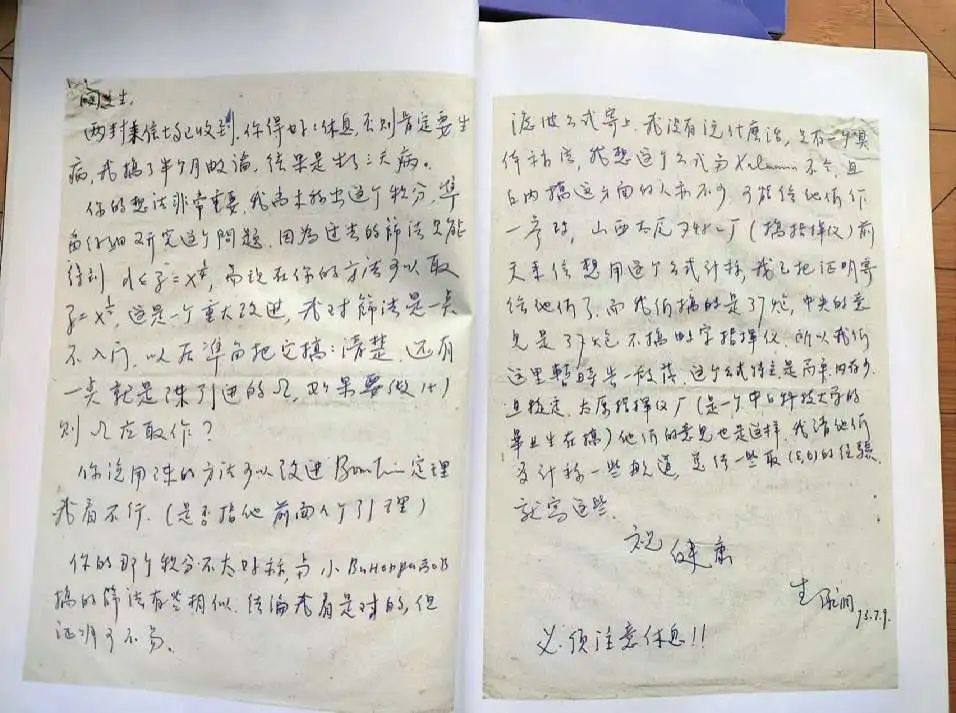 闵生:
两封来信均已收到,你得好:休息,否则肯定要生
病,我搞了半个月两论,结果是生了三天病。
你的想法非常重要,我尚未积出这个积分,准
备仔细研究这个问题,因为过去的筛法只能
得到
而现在你的方法可以取
这是一个重大改进,我对筛法是一点
不入门,以后准备把它搞:清楚,还有
一点就是陈引进的Ω,如果要做(1+1)
则Ω应取作?
你说用陈的方法可以改进 定理
我看不行.(是否指他前面几个引理)
你的那个积分不太对称,与小Виноградов
搞的筛法有些相似.结论我看是对的,但
证明可不易.
滤波公式寄上,我没有说什么话,只有一个具
体算法,我想这个公式与Kalman不合,且
国内搞这方面的人亦不少,可能给他们作
一参改,山西太原 厂(搞指挥仪)前
天来信想用这个公式计称,我已把证明寄
给他们了.而我们搞的是37炮,中央的意
见是37炮不搞数字指挥仪,所以我们
这里暂时告一段落.这个公式特点是简单内存少
且稳定,太原指挥仪厂(是一个中国科技大学的
毕业生在搞)他们的意见也是这样,我请他们
多计称一些 道,总结一些取 的经验.
就写这些.
祝 健康
生 承洞
73.7.9.
必须注意休息!!